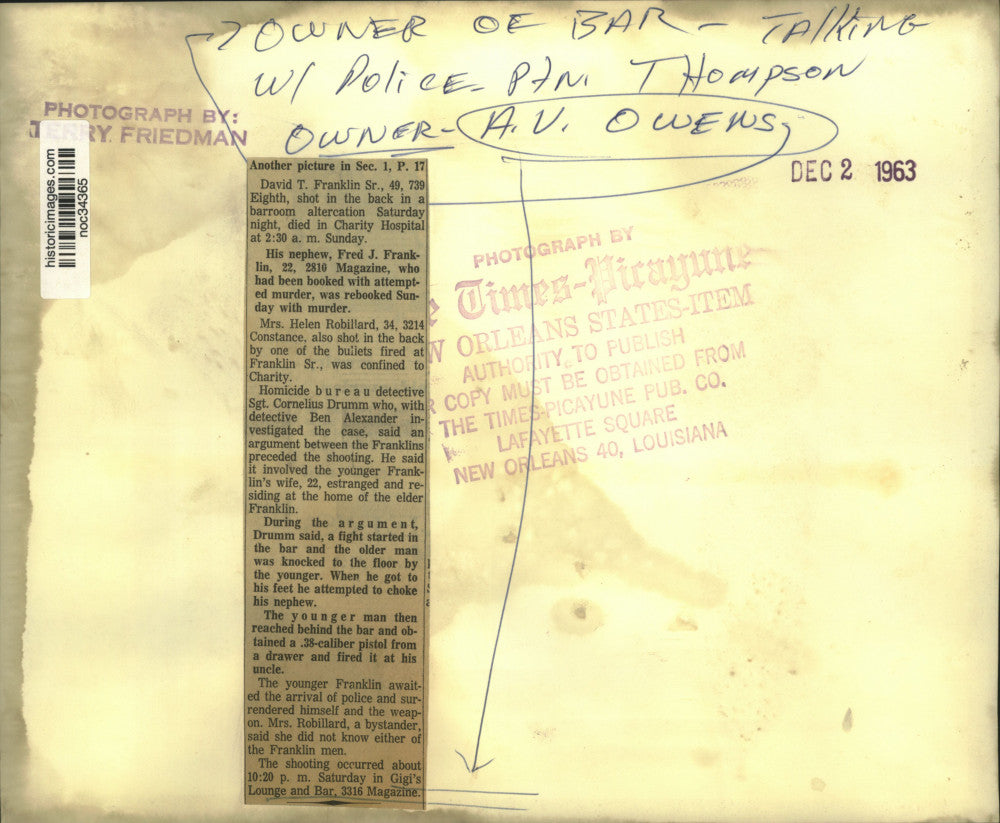 OWNER OF BAR - TALKING
W/ POLICE - PTN. THOMPSON
OWNER - A.V. OWENS
PHOTOGRAPH BY:
TERRY FRIEDMAN
historicimages.com
noc34365
DEC 2 1963
Another picture in Sec. 1, P. 17
David T. Franklin Sr., 49, 739
Eighth, shot in the back in a
barroom altercation Saturday
night, died in Charity Hospital
at 2:30 a. m. Sunday.
His nephew, Fred J. Frank-
lin, 22, 2810 Magazine, who
had been booked with attempt-
ed murder, was rebooked Sun-
day with murder.
Mrs. Helen Robillard, 34, 3214
Constance, also shot in the back
by one of the bullets fired at
Franklin Sr., was confined to
Charity.
Homicide bureau detective
Sgt. Cornelius Drumm who, with
detective Ben Alexander in-
vestigated the case, said an
argument between the Franklins
preceded the shooting. He said
it involved the younger Frank-
lin's wife, 22, estranged and re-
siding at the home of the elder
Franklin.
During the argument,
Drumm said, a fight started in
the bar and the older man
was knocked to the floor by
the younger. When he got to
his feet he attempted to choke
his nephew.
The younger man then
reached behind the bar and ob-
tained a .38-caliber pistol from
a drawer and fired it at his
uncle.
The younger Franklin await-
ed the arrival of police and sur-
rendered himself and the weap-
on. Mrs. Robillard, a bystander,
said she did not know either of
the Franklin men.
The shooting occurred about
10:20 p. m. Saturday in Gigi's
Lounge and Bar, 3316 Magazine.
PHOTOGRAPH BY
Times-Picayune
ORLEANS STATES-ITEM
AUTHORITY TO PUBLISH
COPY MUST BE OBTAINED FROM
THE TIMES-PICAYUNE PUB. CO.
LAFAYETTE SQUARE
NEW ORLEANS 40, LOUISIANA